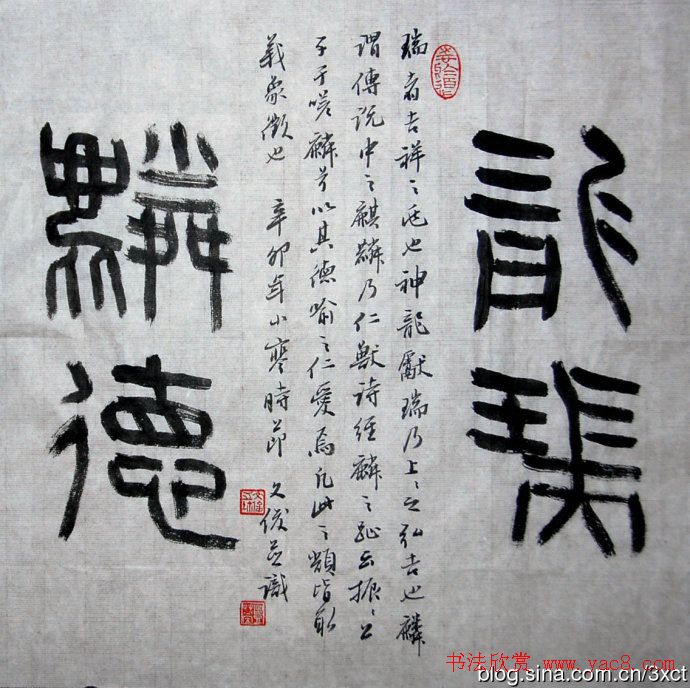 龍瑞
瑞者吉祥之兆也神龍獻瑞乃上〻之弘吉也麟
謂傳说中之麒麟乃仁獸詩經麟之趾云振〻公
子于嗟麟兮以其德喻之仁愛焉凡此之類皆取
義象徵也 辛卯年小寒時節 文俊并識
麟德
书法欣赏 www.yac8.com
blog.sina.com.cn/3xct